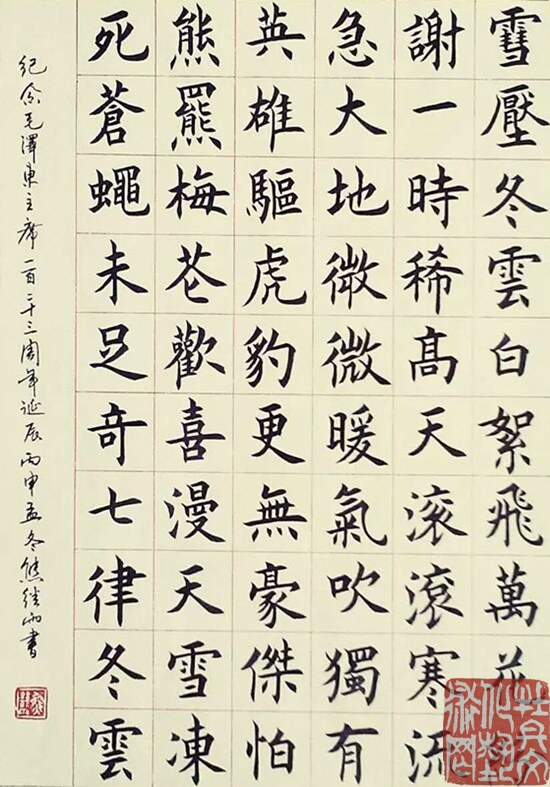 雪壓冬雲白絮飛萬花紛
謝一時稀髙天滚滚寒流
急大地微微暖氣吹獨有
英雄驅虎豹更無豪傑怕
熊羆梅花歡喜漫天雪凍
死蒼蠅未足奇七律冬雲
纪念毛澤東主席一百二十三周年诞辰丙申孟冬熊继雨書